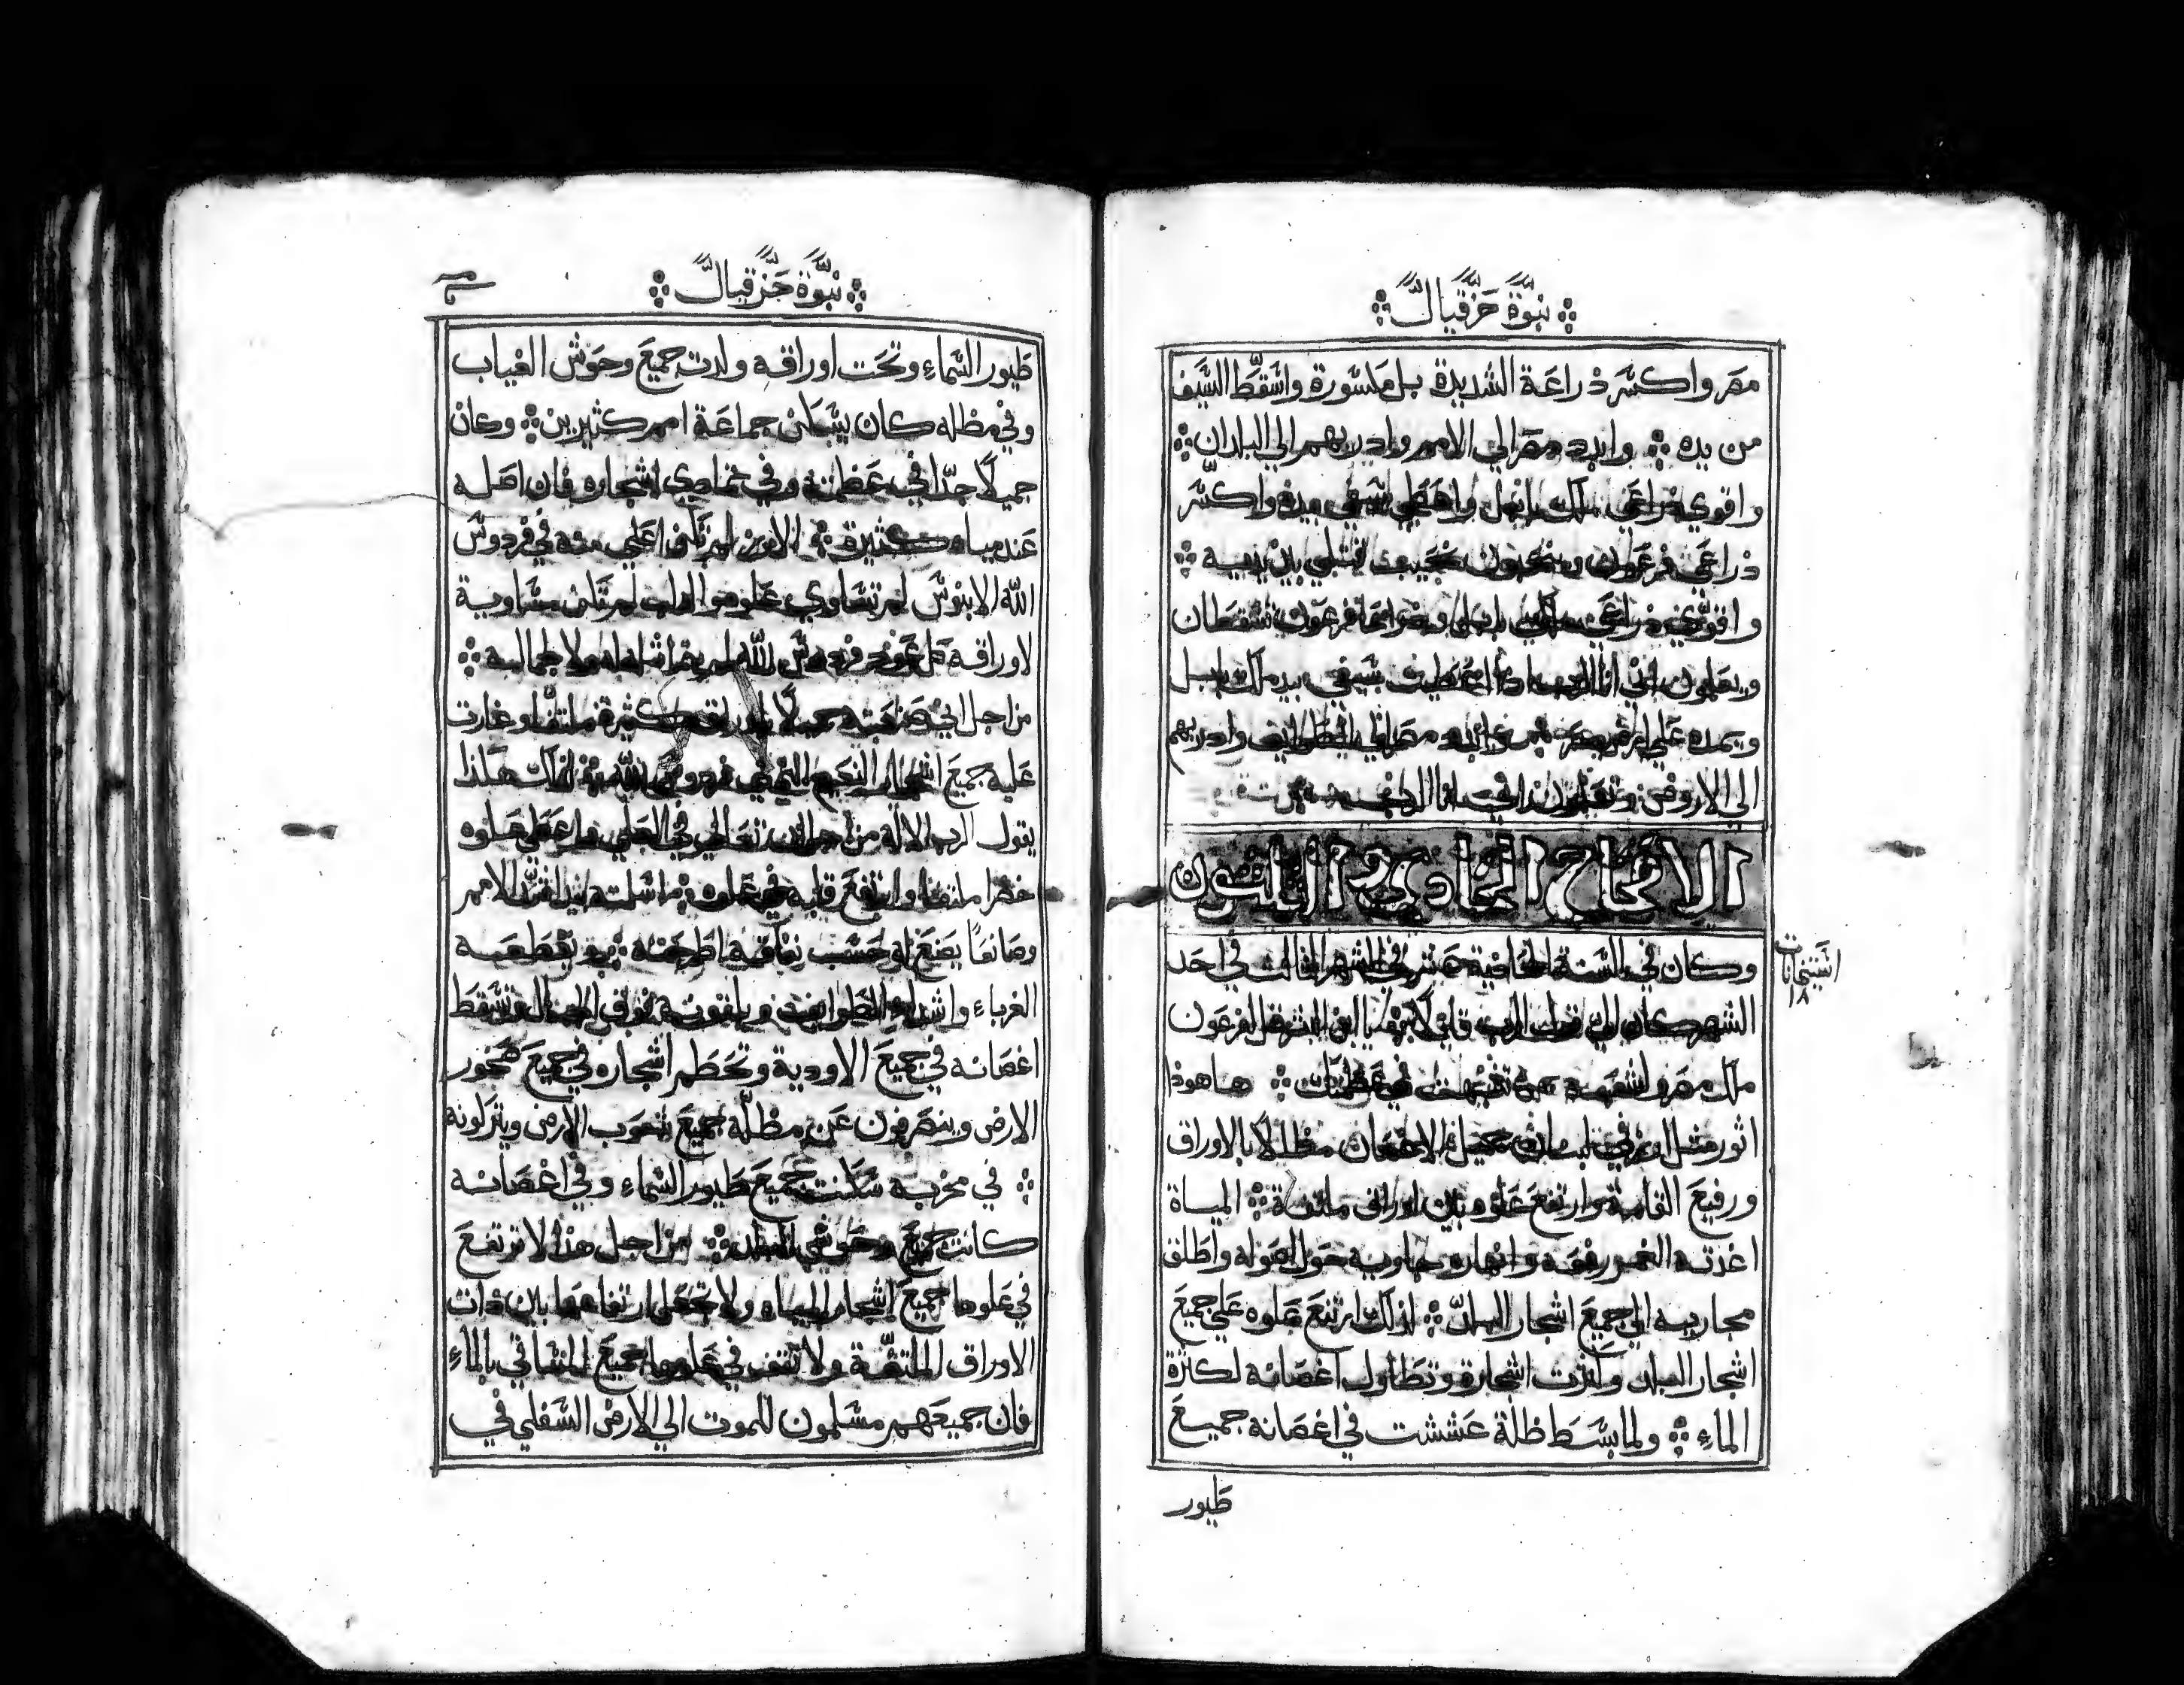 نبوة حزقيال
مصر واكسر ذراعة الشديدة بل مكسورة واسقط السيف
من يده وابدد مصر الي الامم واذريهم الي البلدان
واقوي ذراعي ملك بابل واعطي سيفي بيده واكسر
ذراعي فرعون
واقوي ذراعي ملك بابل وذراعا فرعون تسقطان
ويعلمون اني انا الرب اذا اعطيت سيفي بيد ملك بابل
ويمده علي ارض مصر وابدد مصر واذريهم
الي الارض ويعلمون اني انا الرب
الاصحاح الحادي والثلثون
وكان في السنة الحادية عشر في الشهر الثالث في احد
الشهر كان الي قول الرب قايلا يا ابن البشر قل لفرعون
ملك مصر ولشعبه بمن تشبهت في عظمتك هاهوذا
اثور مثل ارز في لبنان جميل الاغصان مظللا بالاوراق
ورفيع القامة وارتفع علوه بين اوراق ملتفة المياة
اغذته الغمر رفعه وانهاره جاوية حول اصوله واطلق
مجاريه الي جميع اشجار البلد لذلك ارتفع علوه علي جميع
اشجار البلد وكثرت اشجارة وتطاول اغصانه لكثرة
الماء ولما بسط ظلة عششت في اغصانه جميع
طيور
استنخانات
١٨
نبوة حزقيال
طيور السماء وتحت اوراقه ولدت جميع وحوش الغياب
وفي مظله كان يسكن جماعة امم كثيرين وكان
جميلا جدا في عظمته وفي اشجاره فان اصله
عند مياه كثيرة الارز لم تكن اعلي منه في فردوس
الله الابنوس لم تساوي علوه والدلب لم تكن مساوية
لاوراقه كل عود فردوس الله لم يماثله ولا لجماله
من اجل اني صنعته جميلا باوراق كثيرة ملتفة وغارت
عليه جميع اشجار النعيم التي في فردوس الله لذلك هكذا
يقول الرب الاله من اجل انه تعالي في العلي علوه
خضرا ملتفا وارتفع قلبه في علوه اسلمته ليد اشد الامم
وصانعا يصنع له حسب نفاقه اطرحته ويقطعه
الغرباء واشداء الطوايف ويلقونه فوق الجبال وتسقط
اغصانه في جميع الاودية وتحطم اشجاره في جميع صخور
الارض وينصرفون عن مظله جميع شعوب الارض ويتركونه
في مخربه سكنت جميع طيور السماء وفي اغصانه
كانت جميع وحوش البلد من اجل هذا لا ترتفع
في علوها جميع اشجار المياه ولا تجعل ارتفاعها بين ذات
الاوراق الملتفة ولا تقف في علوها جميع المتساقي بالماء
فان جميعهم مسلمون للموت الي الارض السفلي في